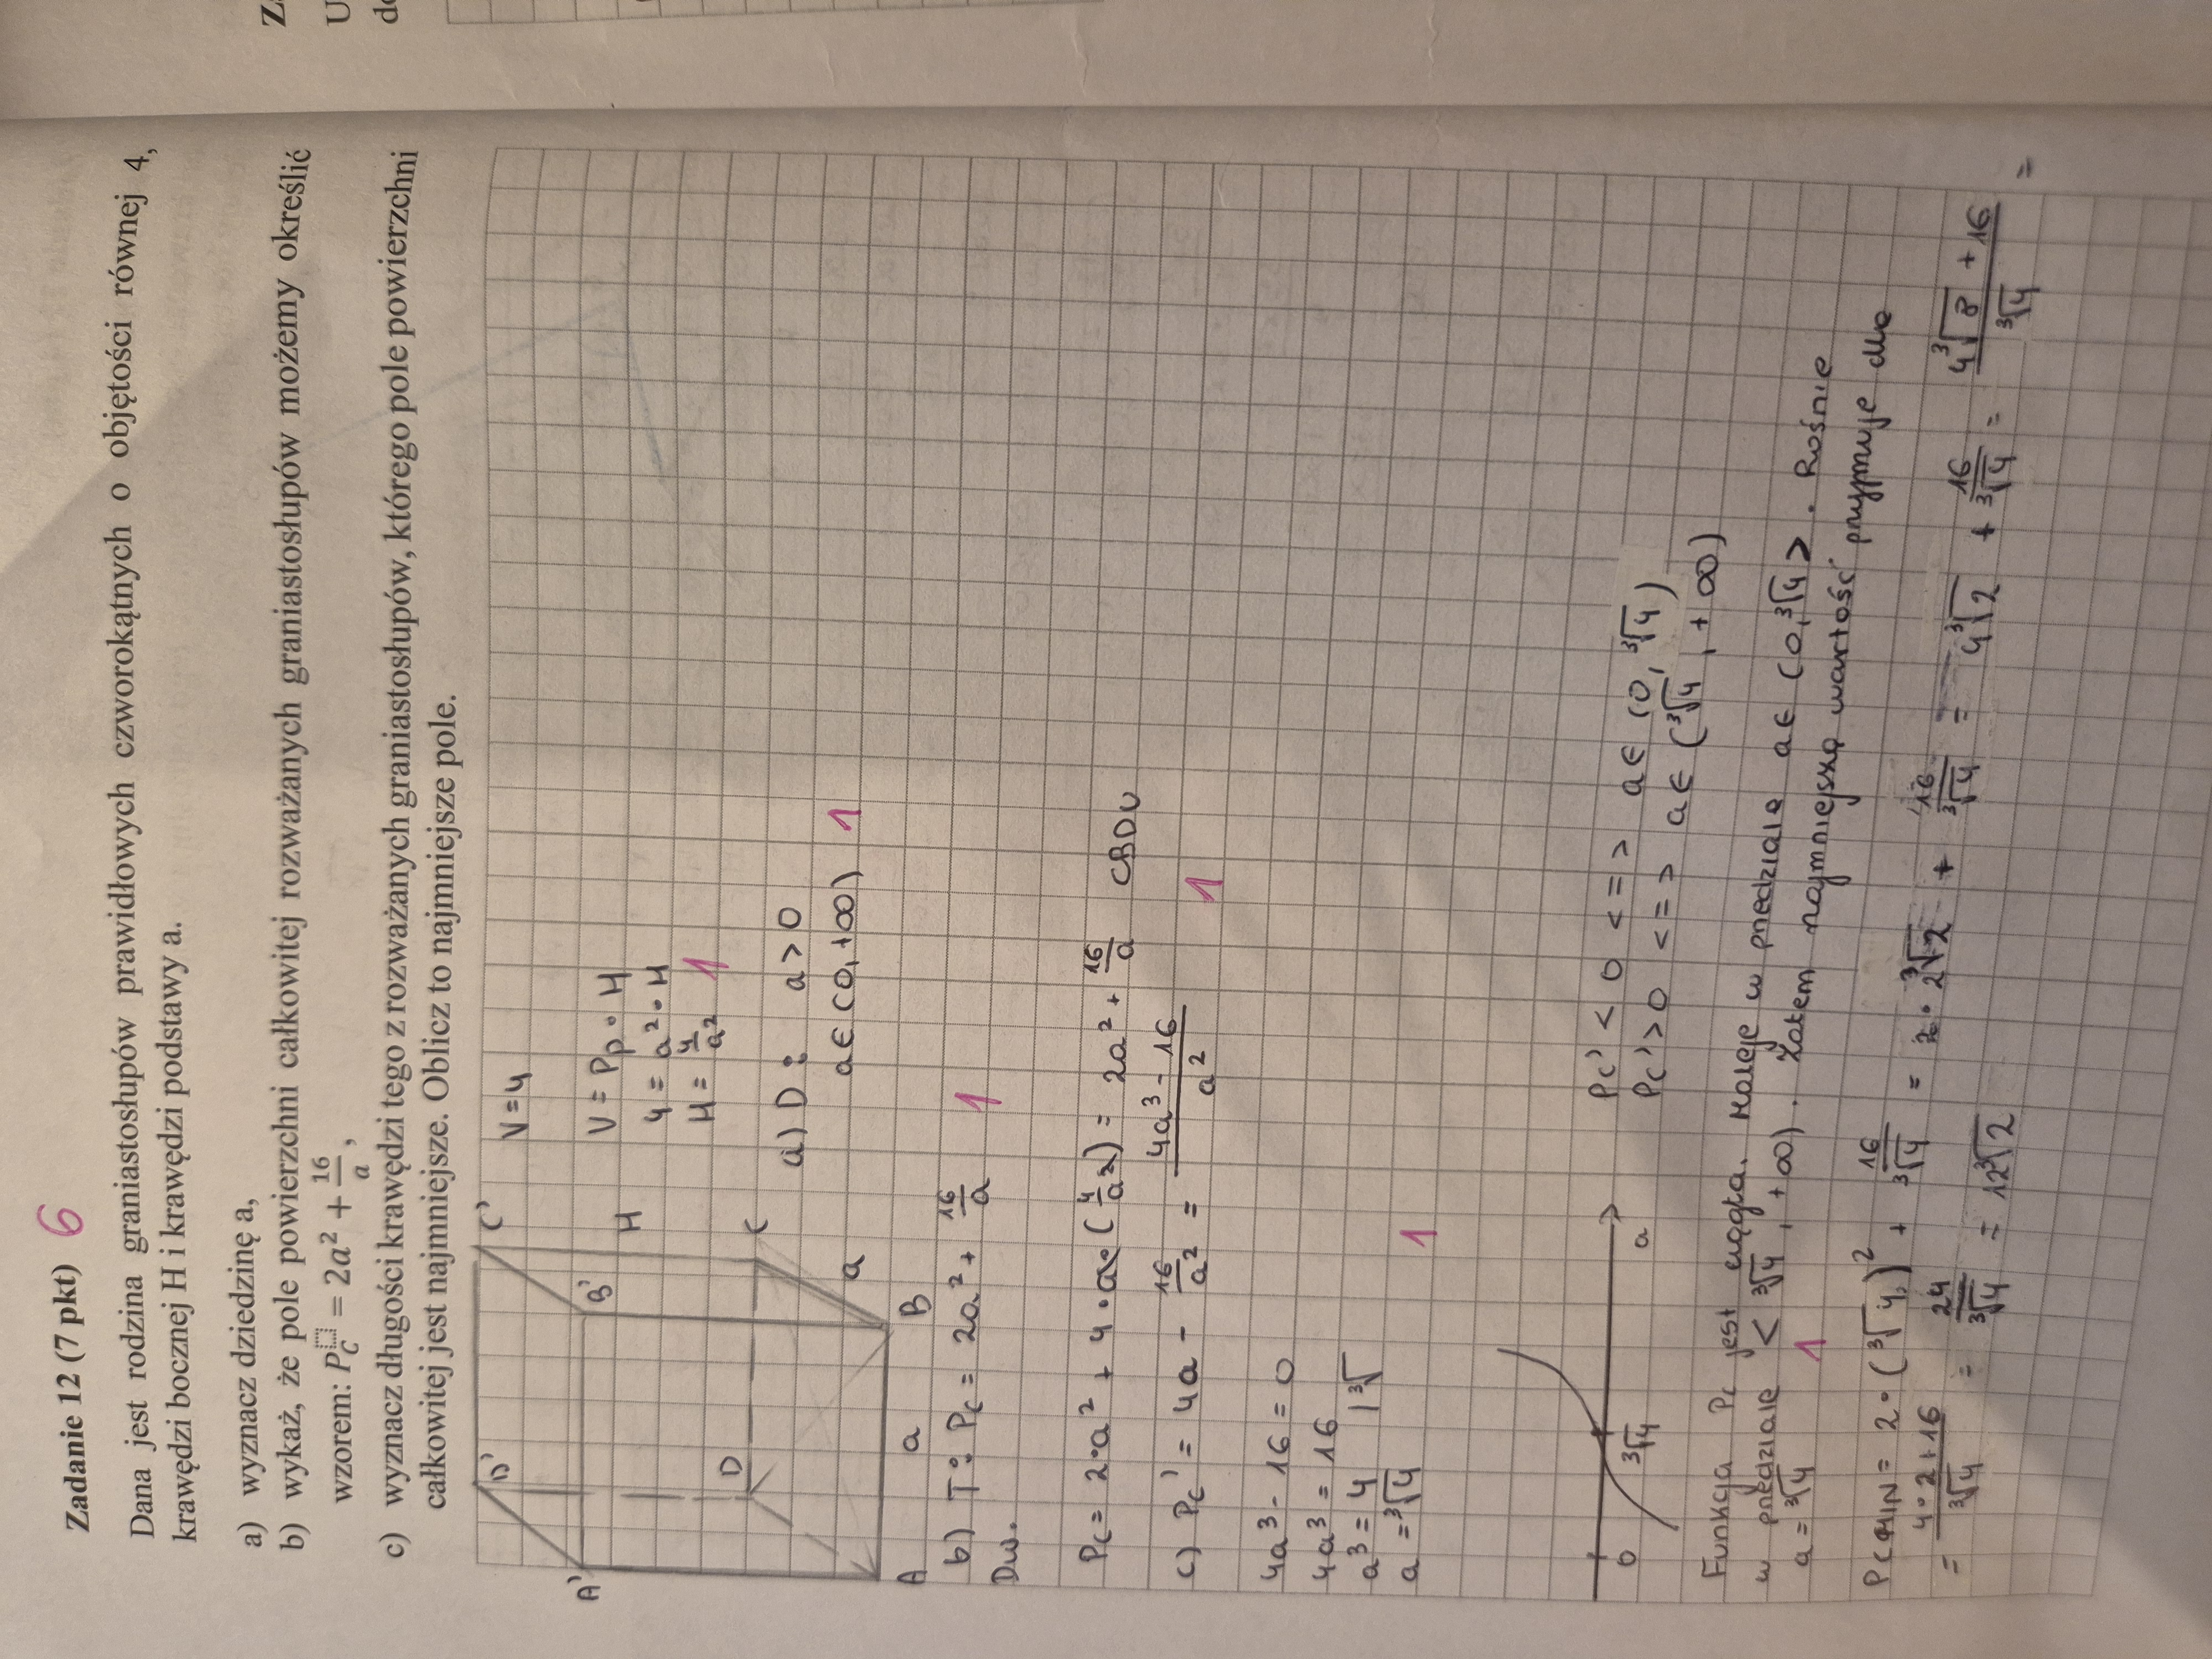 Zadanie 12 (7 pkt) 6
Dana jest rodzina graniastosłupów prawidłowych czworokątnych o objętości równej 4,
krawędzi bocznej H i krawędzi podstawy a.
a) wyznacz dziedzinę a,
b) wykaż, że pole powierzchni całkowitej rozważanych graniastosłupów możemy określić
wzorem: P_C = 2a² + 16/a,
c) wyznacz długości krawędzi tego z rozważanych graniastosłupów, którego pole powierzchni
całkowitej jest najmniejsze. Oblicz to najmniejsze pole.
A' D' B' C'
H
D C
A a B a
V = 4
V = Pp · H
4 = a² · H
H = 4/a² 1
a) D: a > 0
a ∈ (0, +∞) 1
b) T: Pc = 2a² + 16/a 1
Dw.
Pc = 2·a² + 4·a·(4/a²) = 2a² + 16/a CBDU
c) Pc' = 4a - 16/a² = (4a³ - 16)/a² 1
4a³ - 16 = 0
4a³ = 16
a³ = 4 |∛
a = ∛4 1
0 ∛4 a
Pc' < 0 <=> a ∈ (0, ∛4)
Pc' > 0 <=> a ∈ (∛4, +∞)
Funkcja Pc jest ciągła. Maleje w przedziale a ∈ (0, ∛4>. Rośnie
w przedziale <∛4, +∞). Zatem najmniejszą wartość przyjmuje dla
a = ∛4 1
Pc MIN = 2·(∛4)² + 16/∛4 = 2·2∛2 + 16/∛4 = 4∛2 + 16/∛4 = (4∛8 + 16)/∛4 =
= (4·2+16)/∛4 = 24/∛4 = 12∛2
Z
U
d